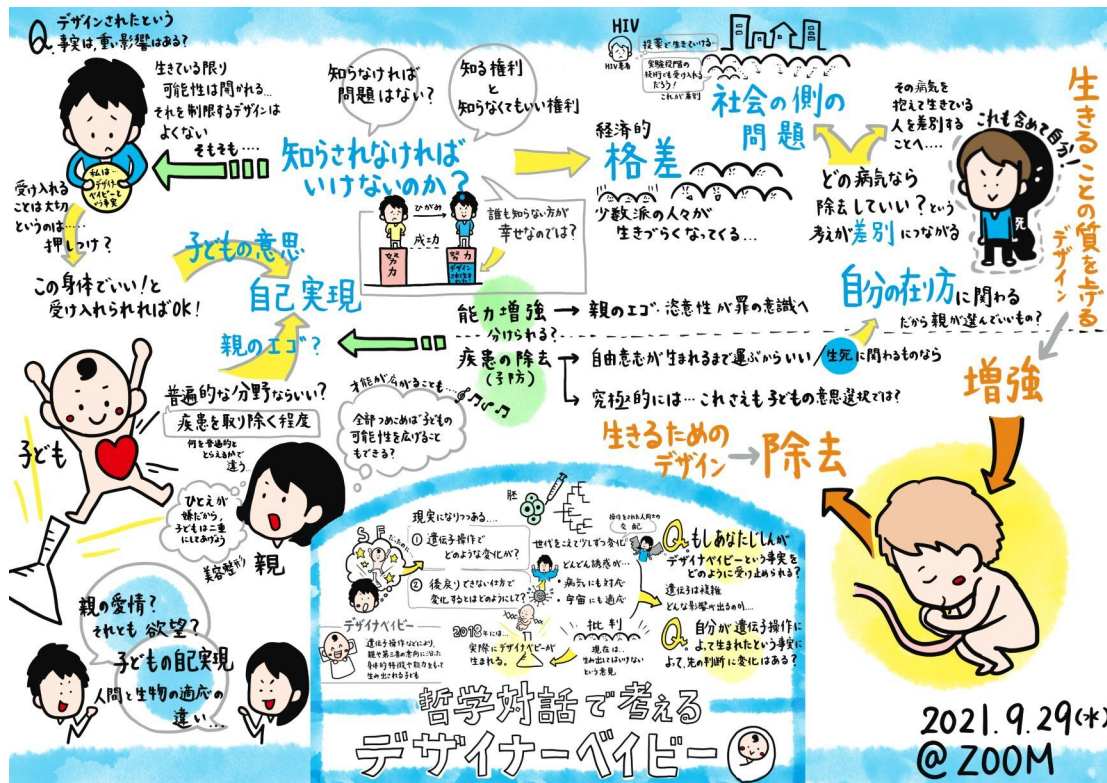 Q. デザインされたという
事実は,重い影響はある?
生きている限り
可能性は開かれる…
それを制限するデザインは
よくない
そもそも….
私は…
デザイナー
ベイビーと
いう事実
受け入れる
ことは大切
というのは……
押しつけ?
この身体でいい!と
受け入れられればOK!
知らなければ
問題はない?
知る権利
と
知らなくてもいい権利
知らされなければ
いけないのか?
ひがみ
成功
努力
努力
デザイン
誰も知らない方が
幸せなのでは?
子どもの意思
自己実現
親のエゴ?
HIV
HIV患者
投薬で生きていける…
実験段階の
技術でも受け入れる
だろう!
これが差別
社会の側の
問題
経済的
格差
少数派の人々が
生きづらくなってくる…
その病気を
抱えて生きている
人を差別する
ことへ….
どの病気なら
除去していい?という
考えが差別につながる
これも含めて自分!
死
生きることの質を上げる
デザイン
自分の在り方に関わる
だから親が選んでいいもの?
能力増強→親のエゴ・恣意性が罪の意識へ
分けられる?
疾患の除去
(予防)
自由意志が生まれるまで運ぶからいい/生死に関わるものなら
究極的には…これさえも子どもの意思選択では?
増強
生きるための
デザイン→除去
子ども
普遍的な分野ならいい?
疾患を取り除く程度
何を普遍的と
とらえるかで
違う…
才能が広がることも…
全部つめこめば子どもの
可能性を広げること
もできる?
ひとえが
嫌だから,
子どもは二重
にしてあげよう
美容整形
親
親の愛情?
それとも欲望?
子どもの自己実現
人間と生物の適応の
違い…
現実になりつつある….
SF
だったのに…
① 遺伝子操作で
どのような変化が?
② 後戻りできない仕方で
変化するとはどのようにして?
胚
世代をこえて少しずつ変化
どんどん誘惑が…
・病気にも対応
・宇宙にも適応
デザイナベイビー
遺伝子操作などにより,
親や第三者の意向に沿った
身体的特徴や能力をもして
生み出される子ども
2018年には…
実際にデザイナベビーが
生まれる。
批判
現在は…
生み出してはいけない
という意見
Q. もしあなたじしんが
デザイナベイビーという事実を
どのように受け止められる?
遺伝子は複雑
どんな影響が出るのか…
Q. 自分が遺伝子操作に
よって生まれたという事実に
よって,先の判断に変化はある?
哲学対話で考える
デザイナーベイビー
2021.9.29(水)
@ZOOM